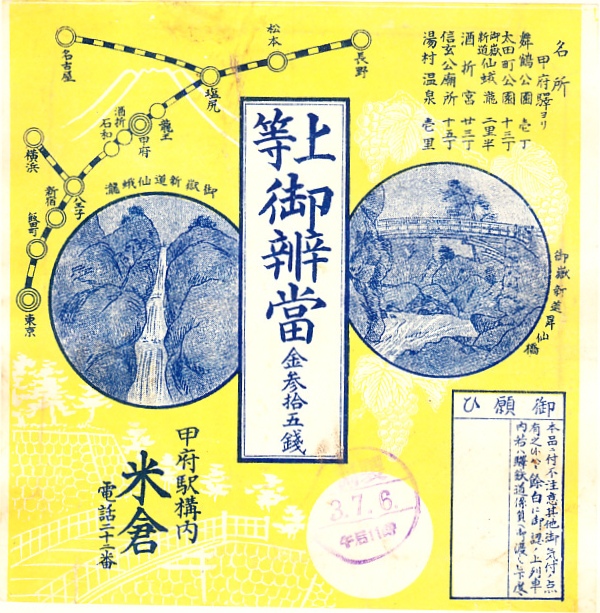 名所
甲府驛ヨリ
舞鶴公園 壱丁
太田町公園 十三丁
御嶽新道仙娥瀧 二里半
酒折宮 廿三丁
信玄公廟所 十五丁
湯村温泉 壱里
長野
松本
塩尻
名古屋
龍王
甲府
酒折
石和
横浜
八王子
新宿
飯田町
東京
御嶽新道仙娥瀧
御嶽新道昇仙橋
上等
御辨當
金参拾五錢
甲府駅構内
米倉
電話二十二番
3.7.6.
午后11時
御願ひ
本品ニ付不注意其他御気付ノ点
有之候ハヾ餘白に御認ノ上列車
内若ハ驛鉄道係員ヘ御渡し下度